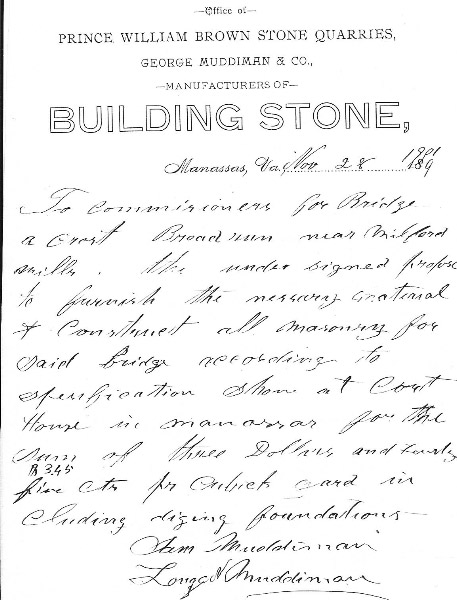 —Office of—
PRINCE WILLIAM BROWN STONE QUARRIES,
GEORGE MUDDIMAN & CO.,
—MANUFACTURERS OF—
BUILDING STONE,
Manassas, Va., Nov 28 1901
To commisioners for Bridge
a crost Broad run near Milford
mills. the under signed propose
to furnish the nessary matereal
& Construct all masonry for
said bridge according to
spesification shone at Cort
House in manassas for the
sum of three Dollars and
$3.45
five cts pr Cubick yard in
cluding diging foundations
Muddiman
Muddiman